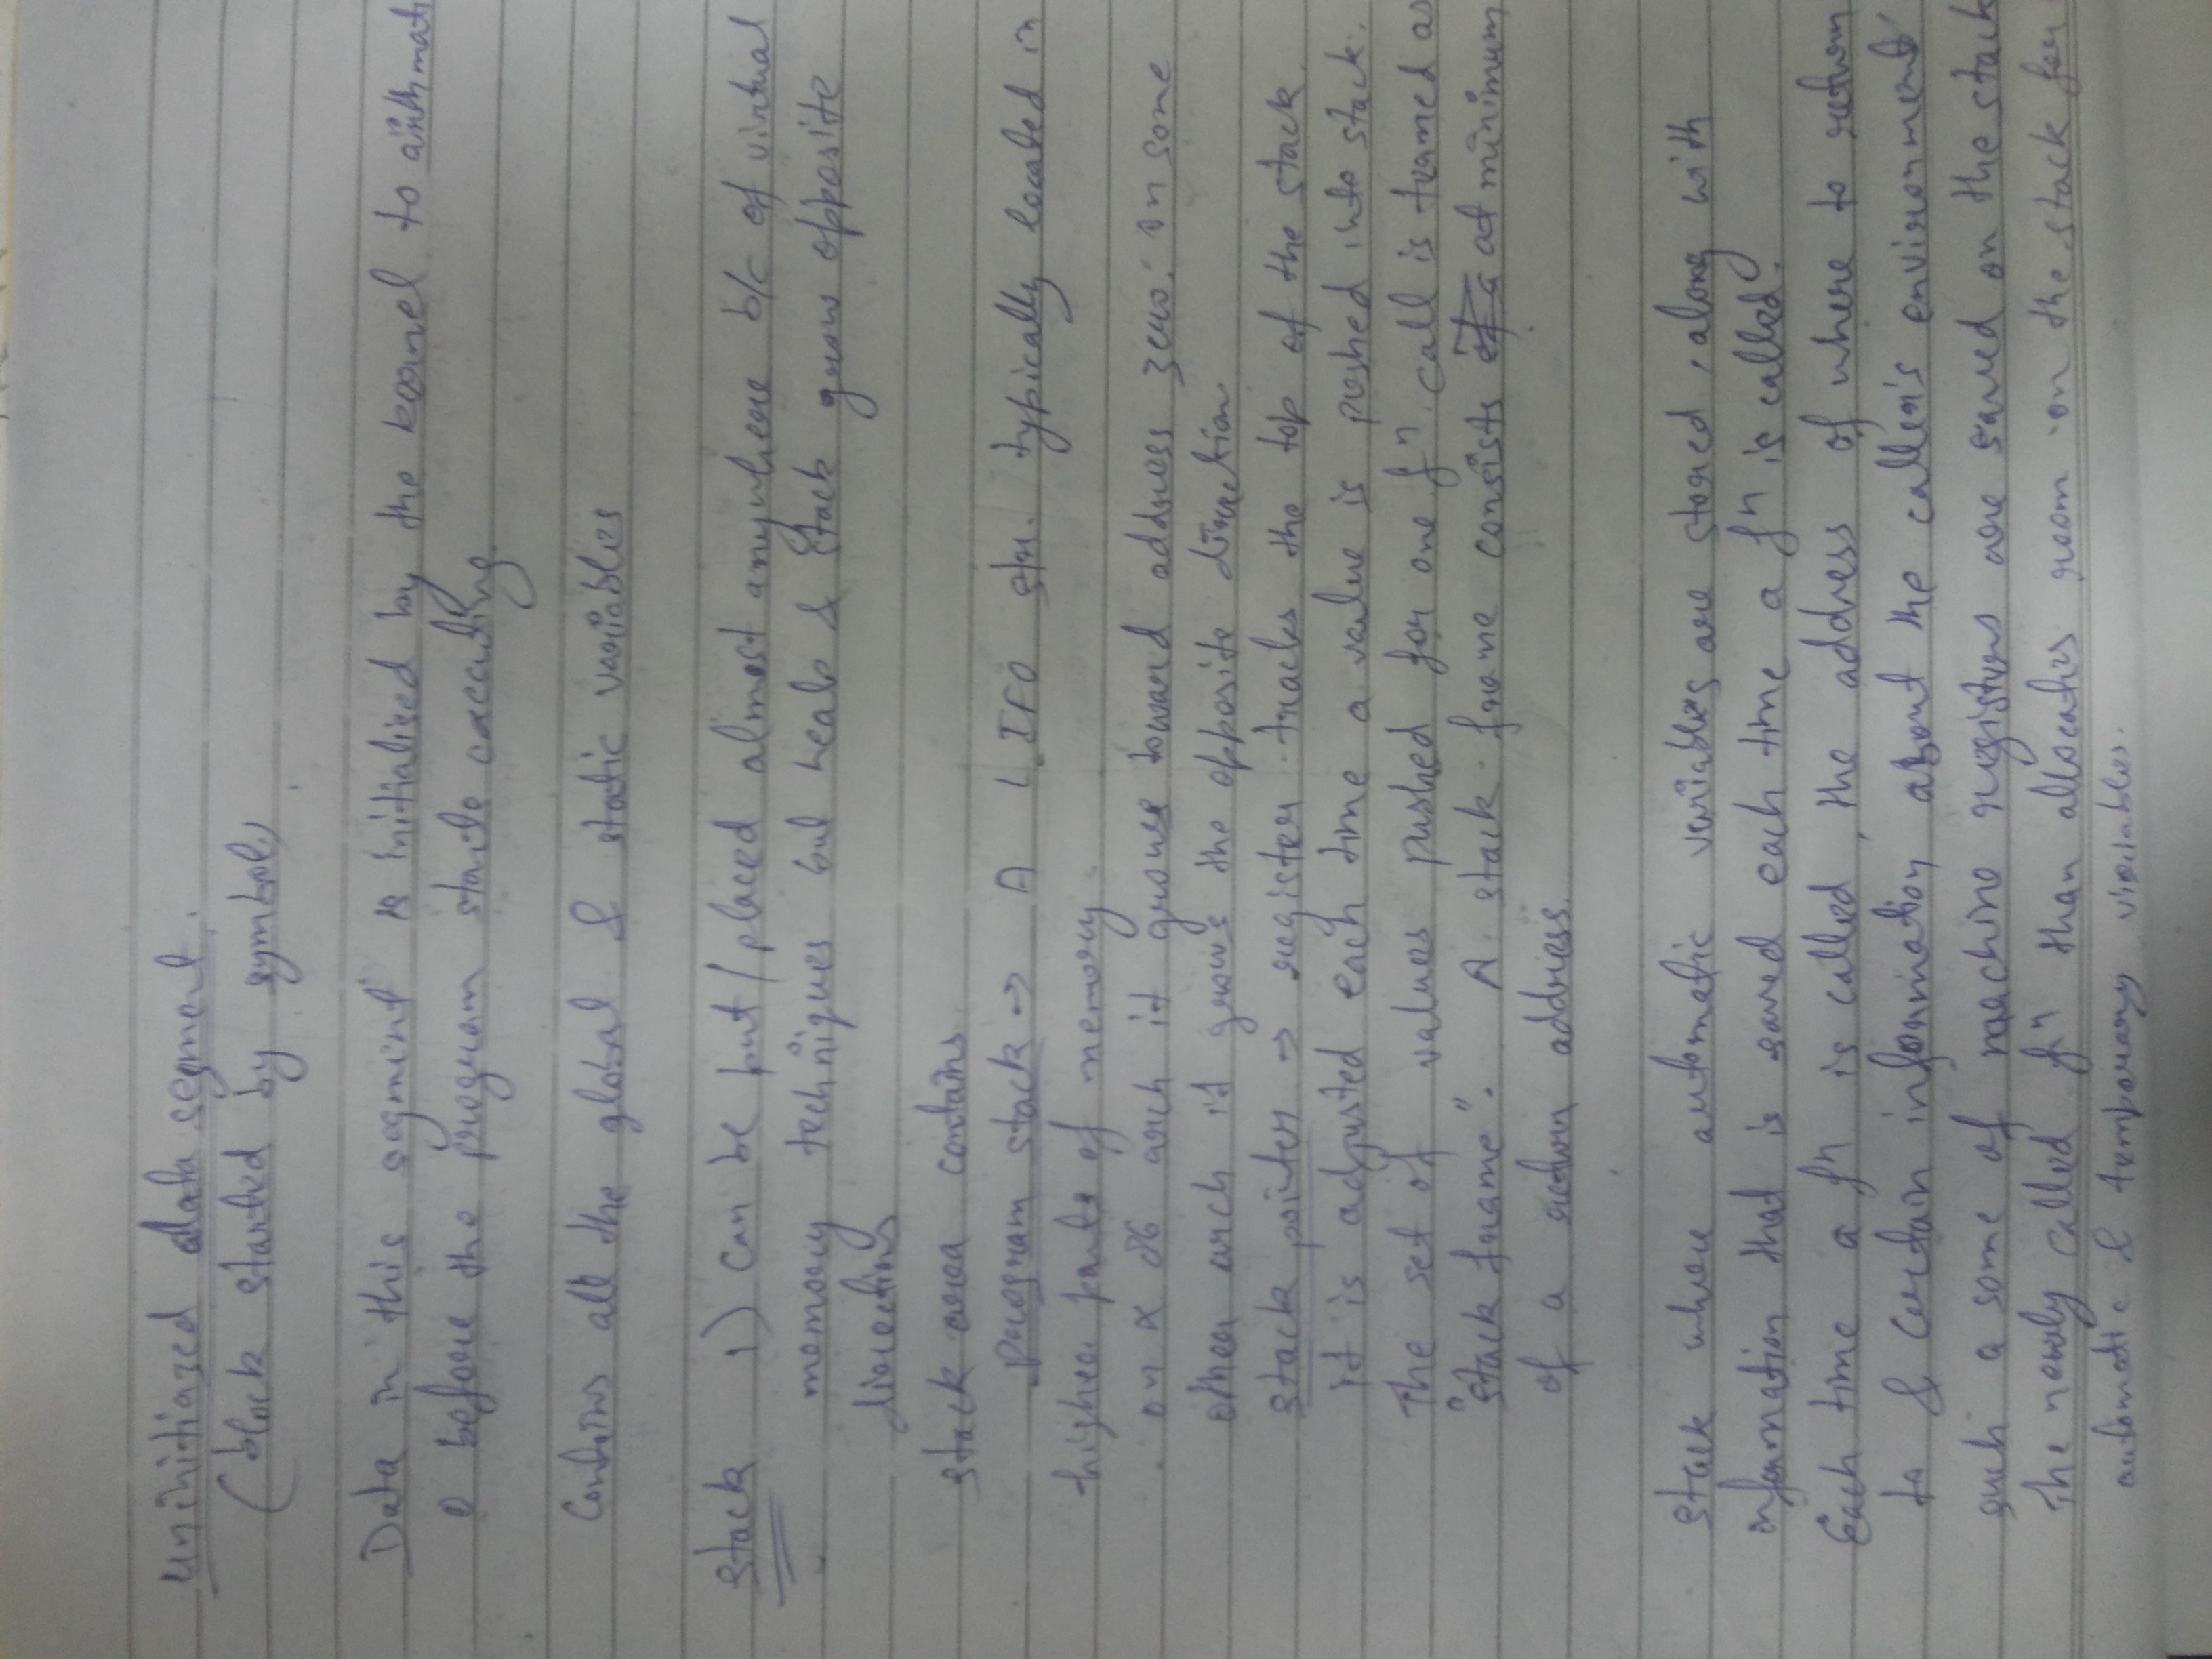 uninitiazed data segment.
(block started by symbol)
Data in this segment is initialised by the kernel to arithmati
0 before the program starts executing.
Contains all the global & static variables
stack 1) Can be put/placed almost anywhere b/c of virtual
memory techniques but heap & stack grow opposite
directions
stack area contains
program stack → A LIFO str. typically located in
higher parts of memory.
on x 86 arch it grows toward address zero. on some
other arch it grows the opposite direction.
stack pointer → register tracks the top of the stack.
it is adjusted each time a value is pushed into stack.
The set of values pushed for one fⁿ call is termed as
"stack frame". A stack frame consists of a at minimum
of a return address.
stack where automatic variables are stored, along with
information that is saved each time a fⁿ is called.
Each time a fⁿ is called, the address of where to return
to & certain information about the caller's environment
such a some of machine registers are saved on the stack
The newly called fⁿ than allocates room on the stack for
automatic & temporary variables.